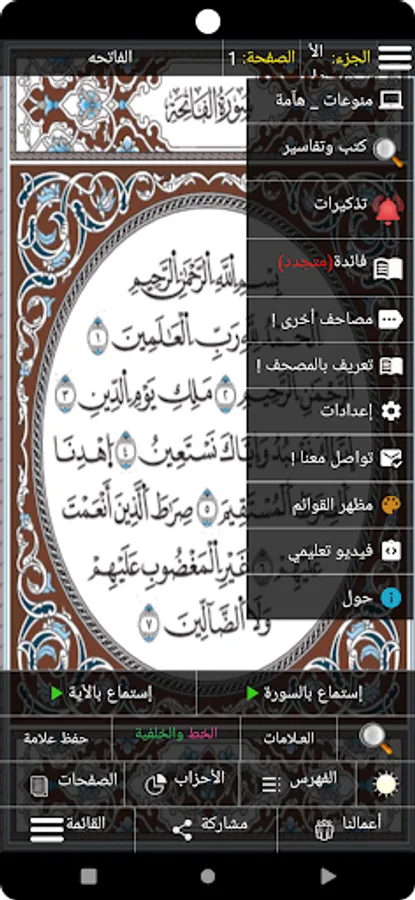 الجزء:
الأ
الصفحة: 1
الفاتحه
سورة الفاتحة
منوعات _ هامة
كتب وتفاسير
تذكيرات
فائدة(متجدد)
مصاحف أخرى !
تعريف بالمصحف !
إعدادات
تواصل معنا !
مظهر القوائم
فيديو تعليمي
حول
بِسْمِ اللَّهِ الرَّحْمَٰنِ الرَّحِيمِ
الْحَمْدُ لِلَّهِ رَبِّ الْعَٰلَمِينَ ١
الرَّحْمَٰنِ الرَّحِيمِ ٢ مَلِكِ يَوْمِ الدِّينِ ٣
نَعْبُدُ وَإِيَّاكَ نَسْتَعِينُ ٤ اهْدِنَا
الْمُسْتَقِيمَ ٥ صِرَٰطَ الَّذِينَ أَنْعَمْتَ
عَلَيْهِمْ ٦ غَيْرِ الْمَغْضُوبِ عَلَيْهِمْ
وَلَا الضَّالِّينَ ٧
إستماع بالسورة
إستماع بالآية
العلامات
الخط والخلفية
حفظ علامة
الفهرس
الأحزاب
الصفحات
أعمالنا
مشاركة
القائمة